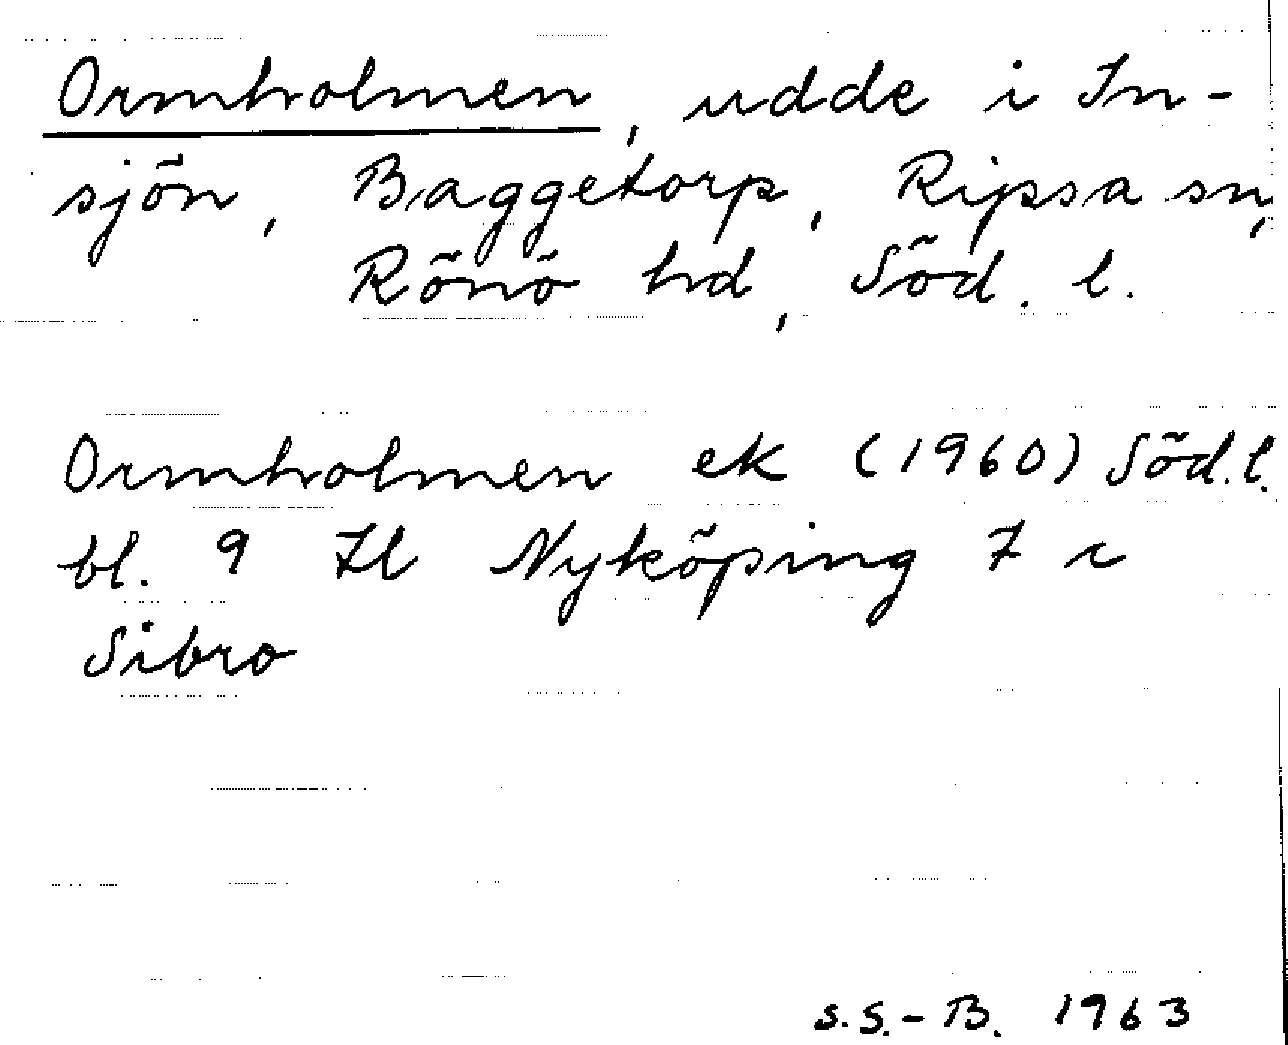 Ormholmen, udde i In-
sjön, Baggetorp, Ripsa sn,
Rönö hd, Söd. l.
Ormholmen ek (1960) Söd. l.
bl. 9 Il Nyköping 7 c
Sibro
S.S.-B. 1963